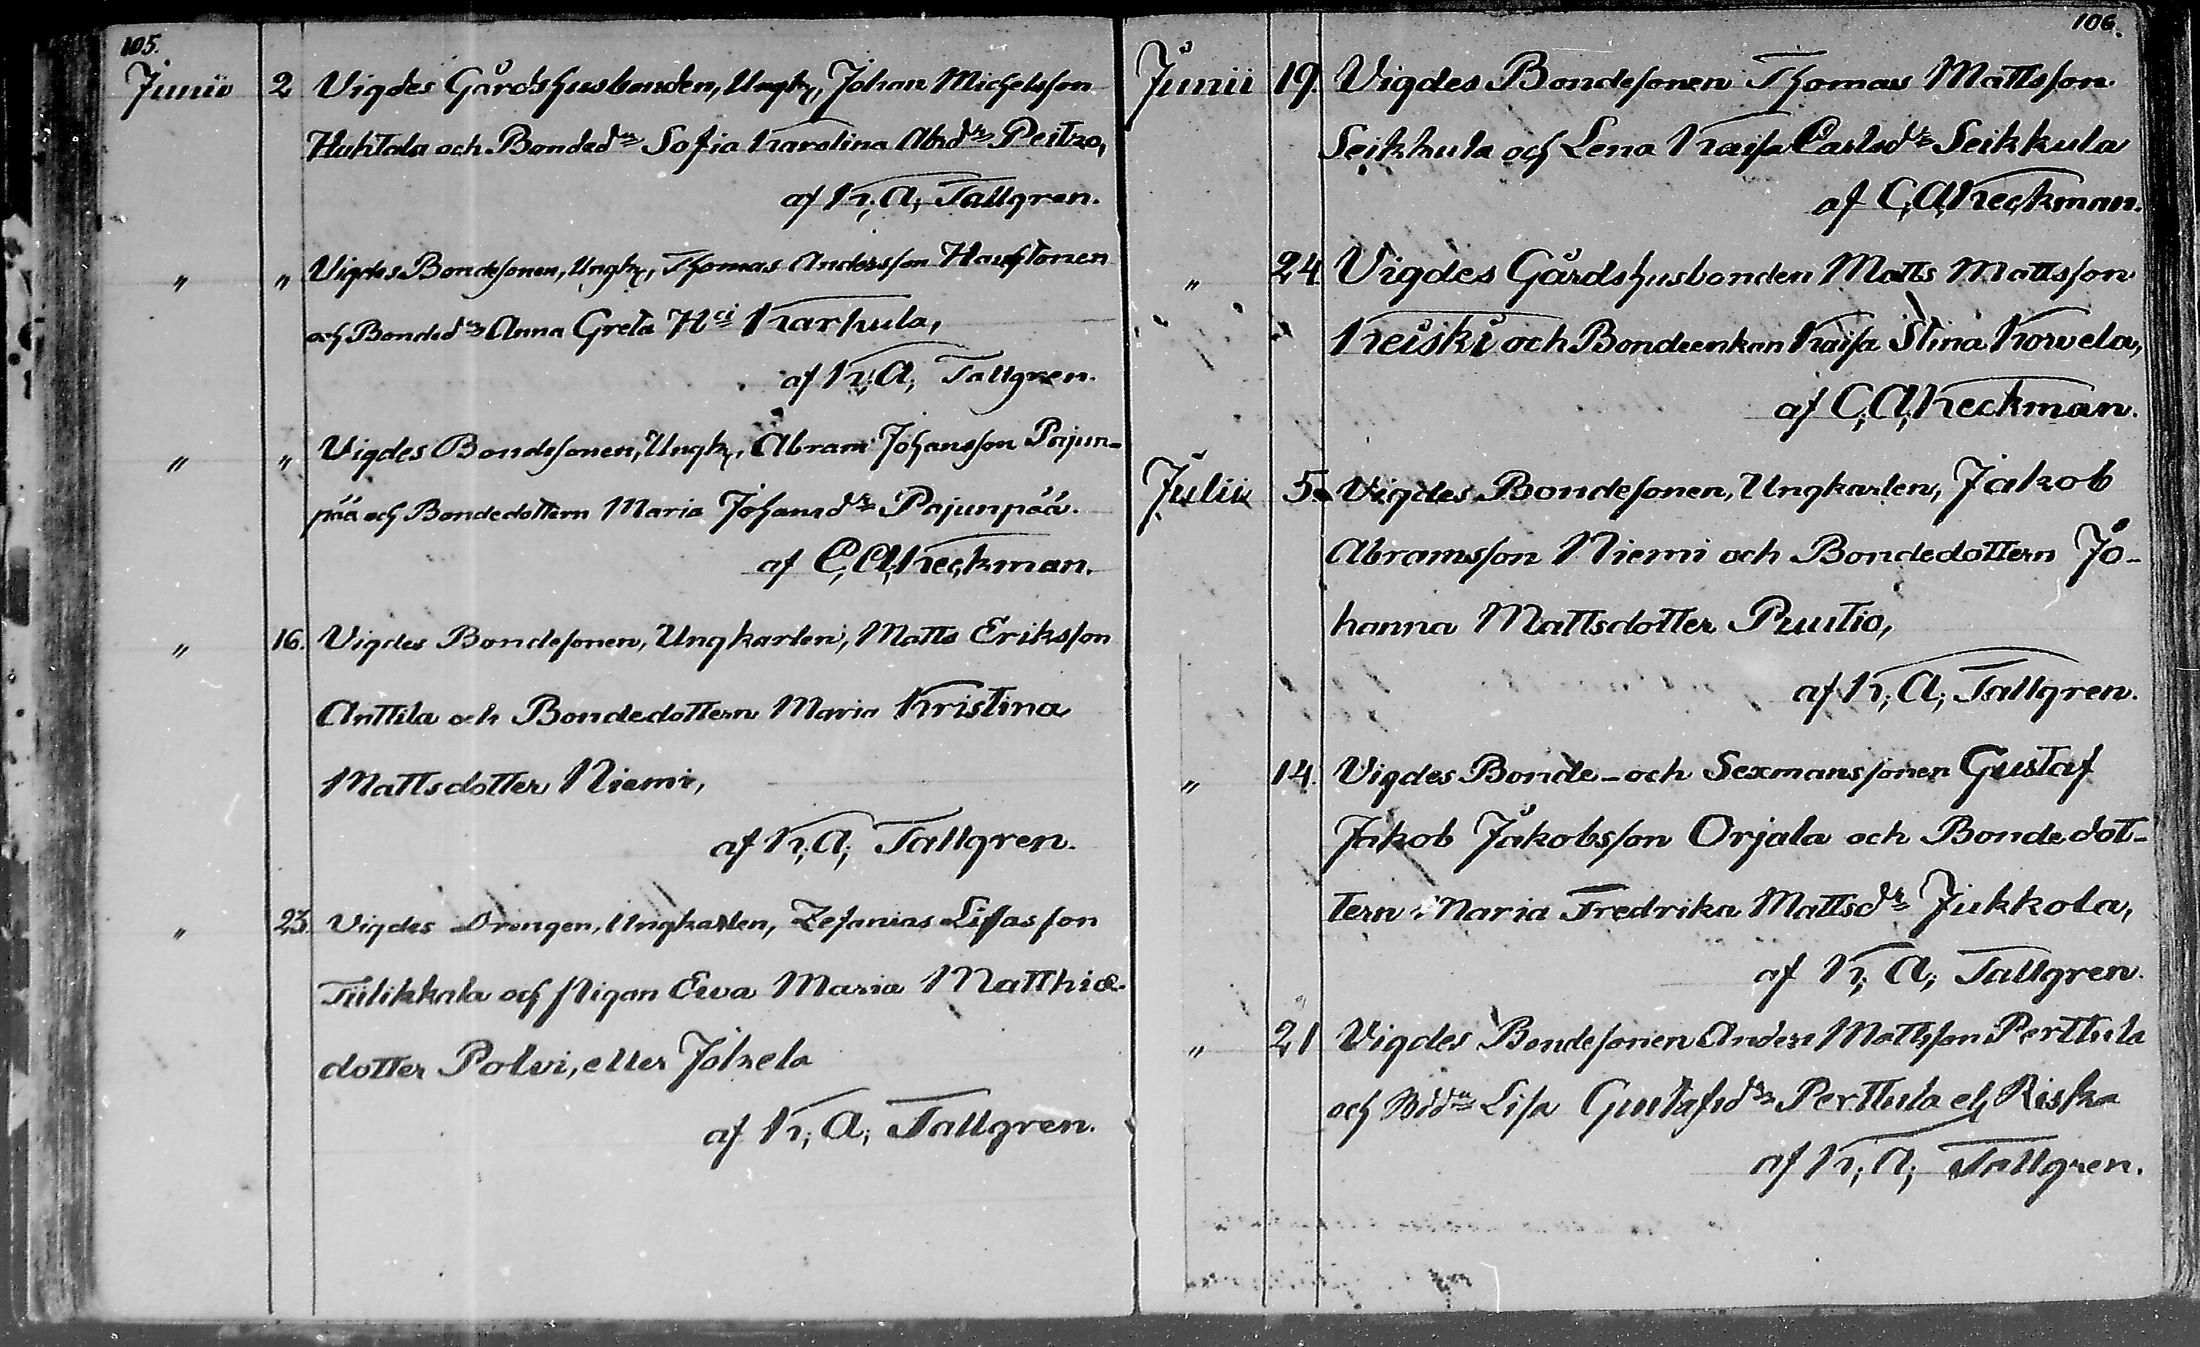 105.
Junii 2 Vigdes Gårdshusbonden, Ungk, Johan Michelsson
Huhtala och Bonded:n Sofia Karolina Abrd:r Peitzo,
af K, A, Tallgren.
" " Vigdes Bondesonen, Ungk, Thomas Andersson
och Bonded:n Anna Greta H:ci Karhula,
af K, A, Tallgren.
" " Vigdes Bondesonen, Ungk, Abram Johansson Pajun-
pää och Bondedottern Maria Johansd:r Pajunpää.
af C, A, Keckman.
" 16. Vigdes Bondesonen, Ungkarlen, Matts Eriksson
Anttila och Bondedottern Maria Kristina
Mattsdotter Niemi,
af K, A, Tallgren.
" 23. Vigdes Drengen, Ungkarlen, Zefanias
Tulikkala och Pigan Eva Maria Matthiæ-
dotter Polvi, eller Jokela
af K, A, Tallgren.
106.
Junii 19. Vigdes Bondesonen Thomas Mattsson
Seikkula och Lena Kaisa Carlsd:r Seikkula
af C, A, Keckman.
" 24 Vigdes Gårdshusbonden Matts Mattsson
Keiski och Bondeenkan Kaisa Stina Korvela,
af C, A, Keckman.
Julii 5. Vigdes Bondesonen, Ungkarlen, Jakob
Abramsson Niemi och Bondedottern Jo-
hanna Mattsdotter Puutio,
af K, A, Tallgren.
" 14. Vigdes Bonde- och Sexmanssonen Gustaf
Jakob Jakobsson Orjala och Bondedot-
tern Maria Fredrika Mattsd:r Jukkola,
af K, A, Tallgren.
" 21 Vigdes Bondesonen Anders Mattsson Perttula
och Bdd:n Lisa Gustafsd:r Perttula
af K, A, Tallgren.